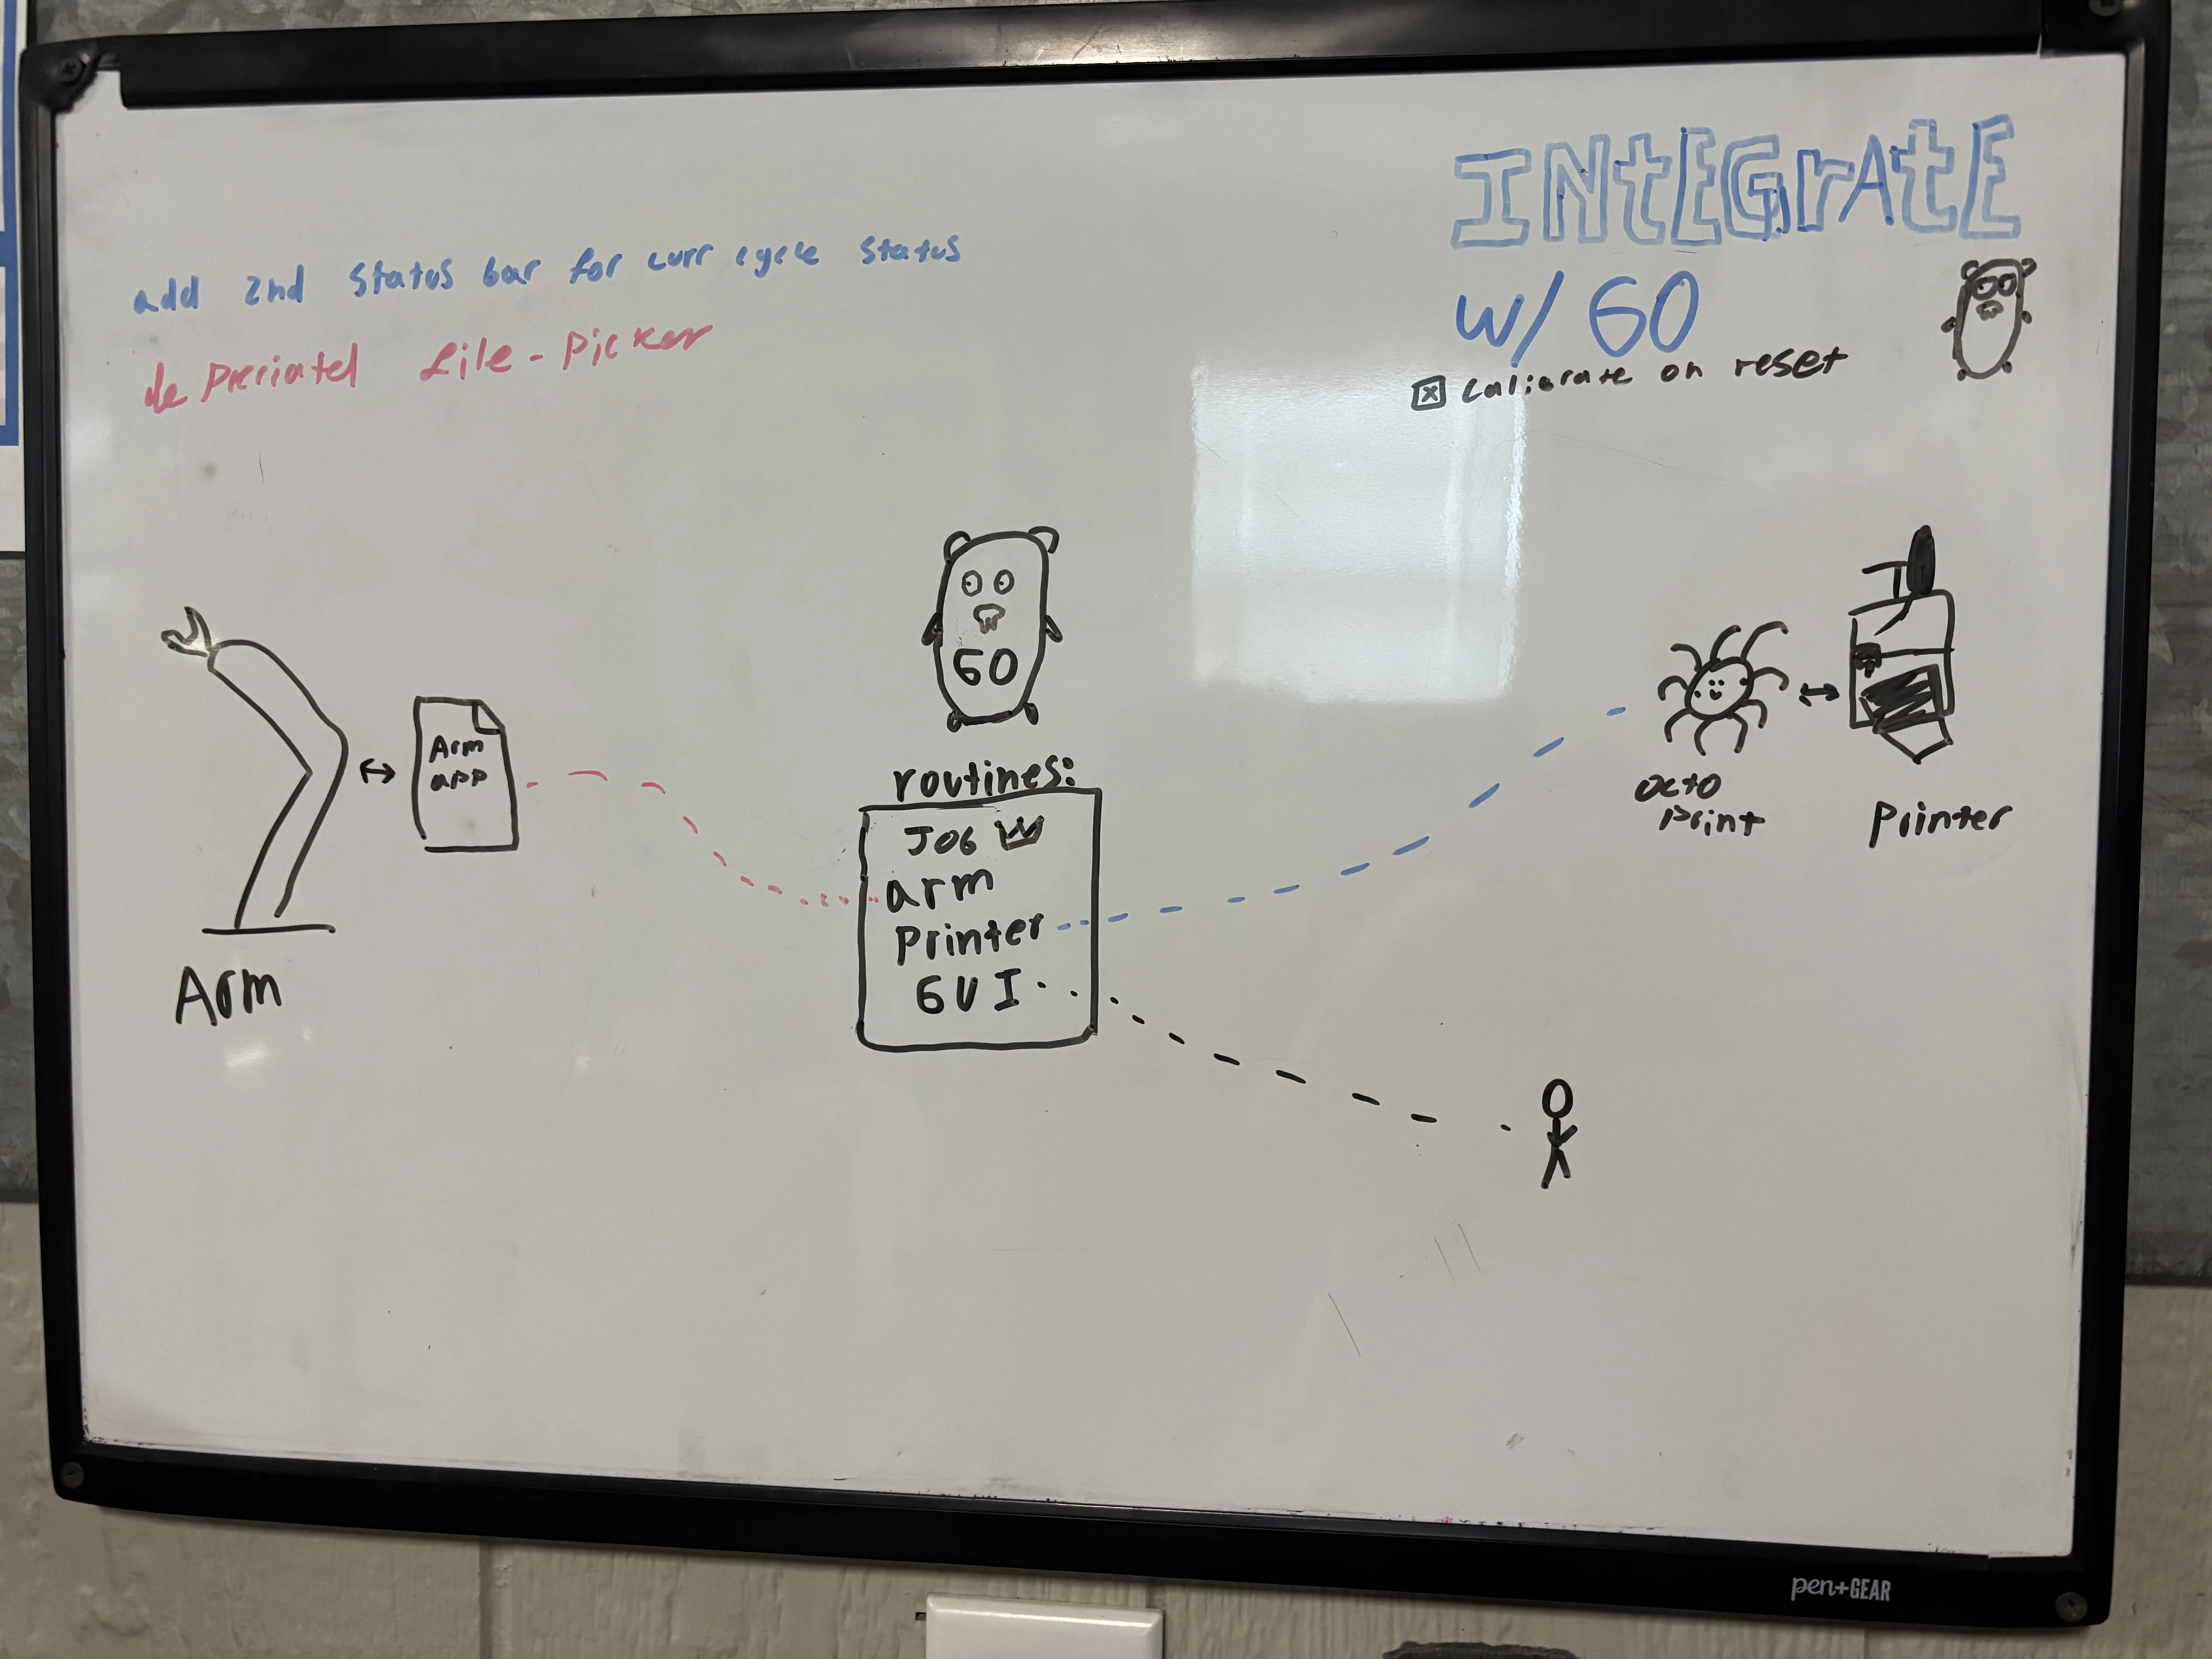 INtEGrAtE
w/ GO
add 2nd status bar for curr cycle status
depreciated file-picker
calibrate on reset
GO
routines:
Arm
app
JOB
arm
Printer
GUI
Octo
Print
Printer
Arm
pen+GEAR